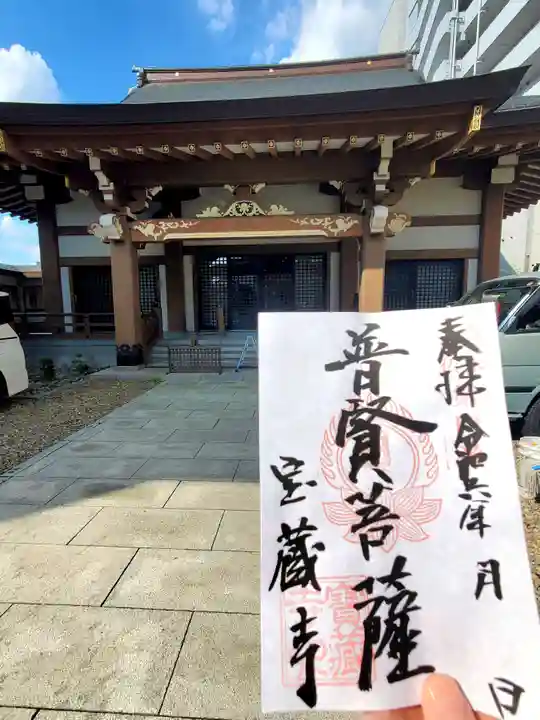 奉拝 令和六年 月 日
普賢菩薩
宝蔵寺